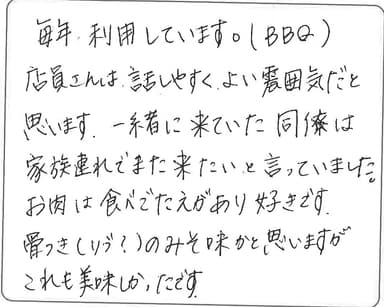 毎年、利用しています。(BBQ)
店員さんは、話しやすく、よい雰囲気だと
思います。一緒に来ていた同僚は
家族連れでまた来たいと言っていました。
お肉は食べごたえがあり好きです。
骨つき(リブ?)のみそ味かと思いますが
これも美味しかったです。